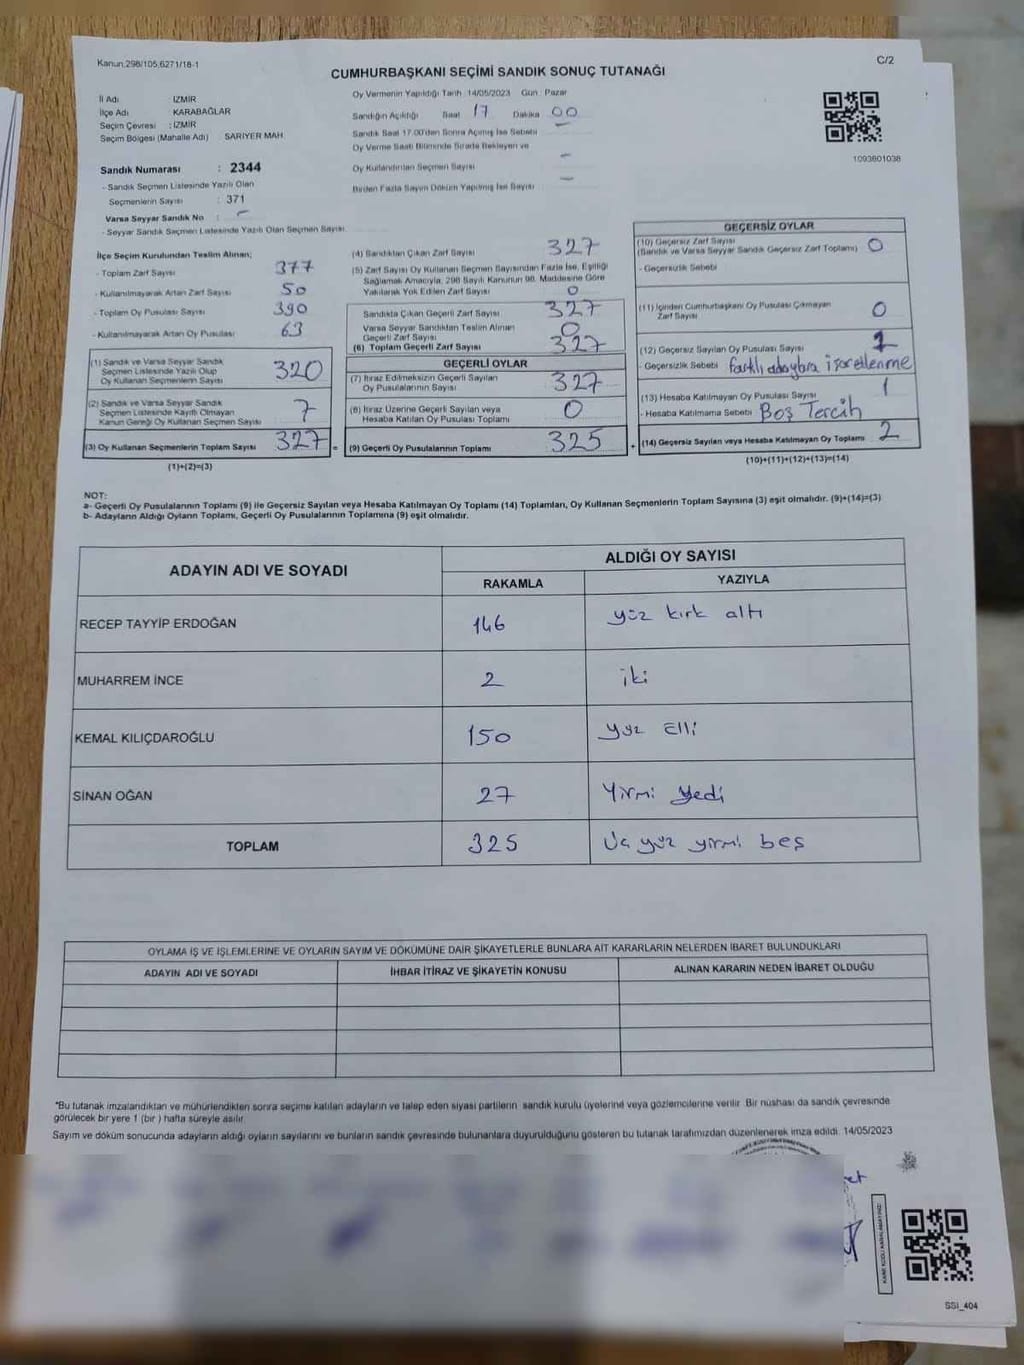 Kanun,298/105,6271/18-1
C/2
CUMHURBAŞKANI SEÇİMİ SANDIK SONUÇ TUTANAĞI
İl Adı : İZMİR
İlçe Adı : KARABAĞLAR
Seçim Çevresi : İZMİR
Seçim Bölgesi (Mahalle Adı) SARIYER MAH.
Sandık Numarası : 2344
- Sandık Seçmen Listesinde Yazılı Olan
Seçmenlerin Sayısı : 371
Varsa Seyyar Sandık No : -
- Seyyar Sandık Seçmen Listesinde Yazılı Olan Seçmen Sayısı:
Oy Vermenin Yapıldığı Tarih :14/05/2023 Gün : Pazar
Sandığın Açıldığı Saat 17 Dakika 00
Sandık Saat 17.00'den Sonra Açılmış İse Sebebi -
Oy Verme Saati Bitiminde Sırada Bekleyen ve
Oy Kullandırılan Seçmen Sayısı -
Birden Fazla Sayım Döküm Yapılmış İse Sayısı -
1093801038
İlçe Seçim Kurulundan Teslim Alınan;
- Toplam Zarf Sayısı 377
- Kullanılmayarak Artan Zarf Sayısı 50
- Toplam Oy Pusulası Sayısı 390
- Kullanılmayarak Artan Oy Pusulası 63
(1) Sandık ve Varsa Seyyar Sandık
Seçmen Listesinde Yazılı Olup
Oy Kullanan Seçmenlerin Sayısı 320
(2) Sandık ve Varsa Seyyar Sandık
Seçmen Listesinde Kayıtlı Olmayan
Kanun Gereği Oy Kullanan Seçmen Sayısı 7
(3) Oy Kullanan Seçmenlerin Toplam Sayısı 327 =
(1)+(2)=(3)
(4) Sandıktan Çıkan Zarf Sayısı 327
(5) Zarf Sayısı Oy Kullanan Seçmen Sayısından Fazla İse, Eşitliği
Sağlamak Amacıyla, 298 Sayılı Kanunun 98. Maddesine Göre
Yakılarak Yok Edilen Zarf Sayısı 0
Sandıkta Çıkan Geçerli Zarf Sayısı 327
Varsa Seyyar Sandıktan Teslim Alınan
Geçerli Zarf Sayısı 0
(6) Toplam Geçerli Zarf Sayısı 327
GEÇERLİ OYLAR
(7) İtiraz Edilmeksizin Geçerli Sayılan
Oy Pusulalarının Sayısı 327
(8) İtiraz Üzerine Geçerli Sayılan veya
Hesaba Katılan Oy Pusulası Toplamı 0
(9) Geçerli Oy Pusulalarının Toplamı 325 +
GEÇERSİZ OYLAR
(10) Geçersiz Zarf Sayısı
(Sandık ve Varsa Seyyar Sandık Geçersiz Zarf Toplamı) 0
- Geçersizlik Sebebi
(11) İçinden Cumhurbaşkanı Oy Pusulası Çıkmayan
Zarf Sayısı 0
(12) Geçersiz Sayılan Oy Pusulası Sayısı 1
- Geçersizlik Sebebi farklı adaylara işaretlenme
(13) Hesaba Katılmayan Oy Pusulası Sayısı 1
- Hesaba Katılmama Sebebi Boş Tercih
(14) Geçersiz Sayılan veya Hesaba Katılmayan Oy Toplamı 2
(10)+(11)+(12)+(13)=(14)
NOT:
a- Geçerli Oy Pusulalarının Toplamı (9) ile Geçersiz Sayılan veya Hesaba Katılmayan Oy Toplamı (14) Toplamları, Oy Kullanan Seçmenlerin Toplam Sayısına (3) eşit olmalıdır. (9)+(14)=(3)
b- Adayların Aldığı Oyların Toplamı, Geçerli Oy Pusulalarının Toplamına (9) eşit olmalıdır.
ADAYIN ADI VE SOYADI ALDIĞI OY SAYISI
RAKAMLA YAZIYLA
RECEP TAYYİP ERDOĞAN 146 yüz kırk altı
MUHARREM İNCE 2 iki
KEMAL KILIÇDAROĞLU 150 yüz Elli
SİNAN OĞAN 27 Yirmi yedi
TOPLAM 325 Üç yüz yirmi beş
OYLAMA İŞ VE İŞLEMLERİNE VE OYLARIN SAYIM VE DÖKÜMÜNE DAİR ŞİKAYETLERLE BUNLARA AİT KARARLARIN NELERDEN İBARET BULUNDUKLARI
ADAYIN ADI VE SOYADI İHBAR İTİRAZ VE ŞİKAYETİN KONUSU ALINAN KARARIN NEDEN İBARET OLDUĞU
*Bu tutanak imzalandıktan ve mühürlendikten sonra seçime katılan adayların ve talep eden siyasi partilerin sandık kurulu üyelerine veya gözlemcilerine verilir. Bir nüshası da sandık çevresinde
görülecek bir yere 1 (bir ) hafta süreyle asılır.
Sayım ve döküm sonucunda adayların aldığı oyların sayılarını ve bunların sandık çevresinde bulunanlara duyurulduğunu gösteren bu tutanak tarafımızdan düzenlenerek imza edildi. 14/05/2023
KARE KODU KARALAMAYINIZ!
SSİ_404